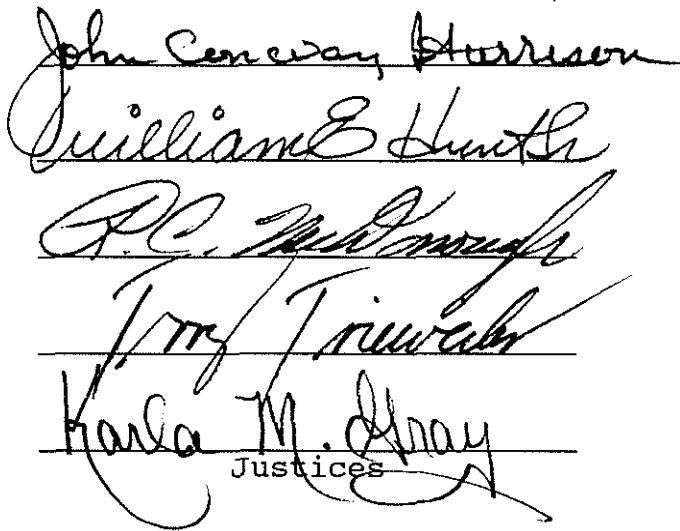 John Conway Harrison
William E Hunt Sr
R.C. McDonough
Terry Trieweiler
Karla M. Gray
Justices